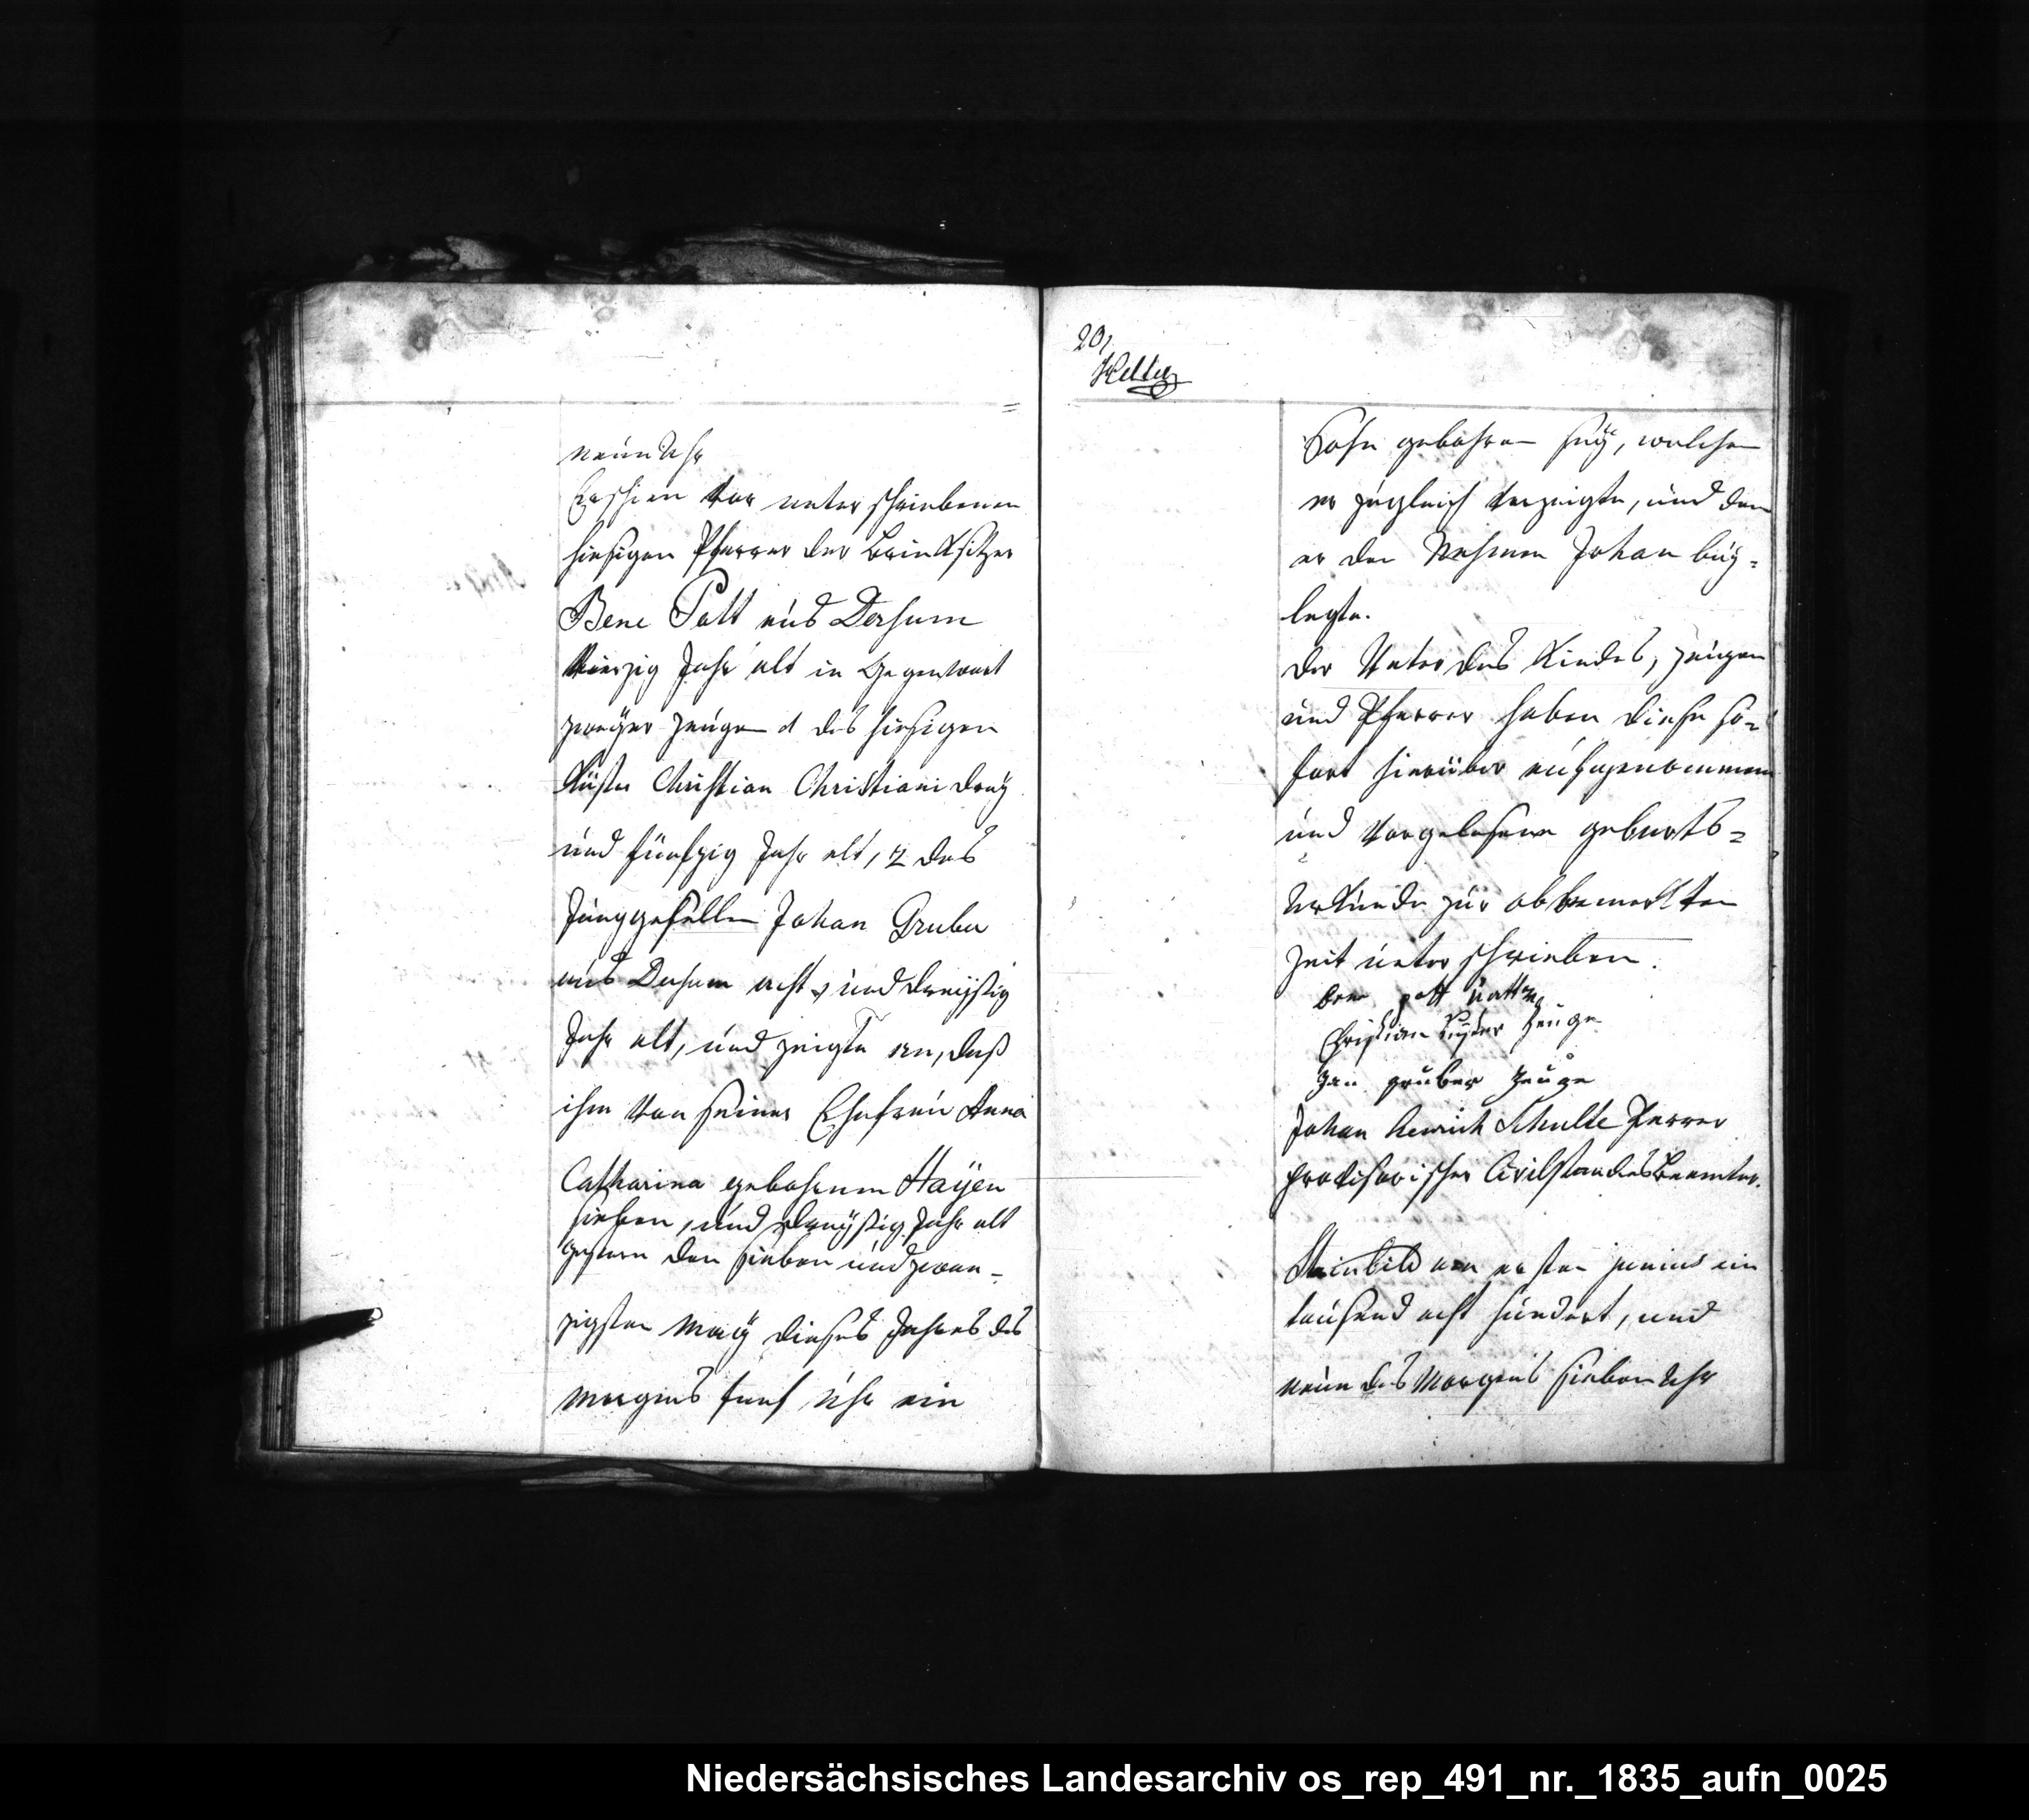 neun Uhr
Erschien vor unterschriebenen
hiesigen Pfarrer der Brinksitzer
Bene Patt aus Dersum
vierzig Jahr alt in Gegenwart
zweÿer Zeugen des hiesigen
Küster Christian Christiani dreÿ
und fünfzig Jahr alt, 2 des
Junggesellen Johan Gruber
aus Dersum acht und dreÿßig
Jahr alt, und zeigte an, daß
ihm von seiner Ehefrau Anna
Catharina gebohrnen Haÿen
sieben, und dreÿßig Jahr alt
gestern den sieben und zwan-
zigsten Maÿ dieses Jahres des
Morgens fünf Uhr ein
20,
Sohn gebohren seÿ, welchen
er zugleich vorzeigte, und dem
er den Nahmen Johan beÿ-
legte.
Der Vater des Kindes, Zeugen
und Pfarrer haben diese so-
fort hierüber aufgenommene
und vorgelesene geburts-
Urkunde zur obbemerkten
Zeit unterschrieben.
bene patt
Christian Zeuge
Jan gruber Zeuge
Johan Henrich Schulte Pfarrer
provisorischer Civilstandesbeamter.
Steinbild am ersten junius ein
tausend acht hundert, und
neun des Morgens sieben Uhr
Niedersächsisches Landesarchiv os_rep_491_nr._1835_aufn_0025